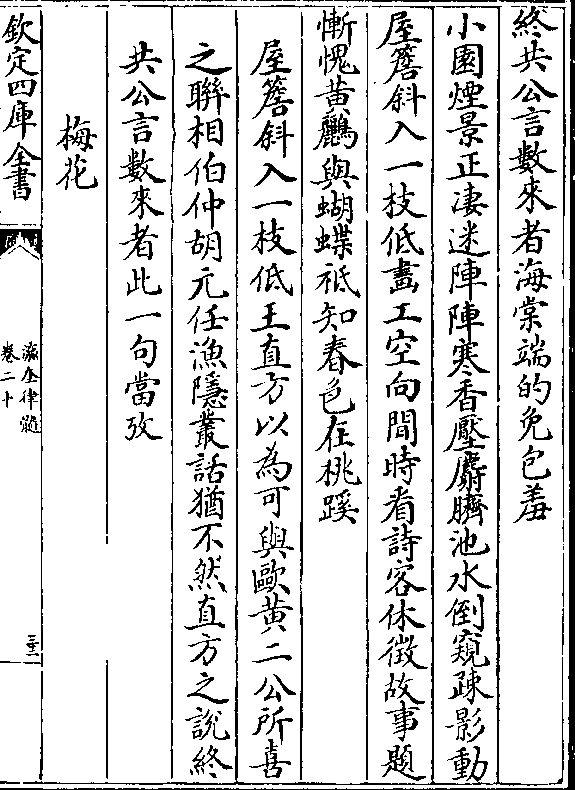 終共公言數來者海棠端的免包羞
小園煙景正淒迷陣陣寒香壓麝臍池水倒窺疎影動
屋簷斜入一枝低畫工空向閒時看詩客休徵故事題
慚愧黄鸝與蝴蝶祗知春色在桃蹊
屋簷斜入一枝低王直方以為可與歐黄二公所喜
之聯相伯仲胡元任漁隱叢話猶不然直方之說終
共公言數來者此一句當攷
梅花
欽定四庫全書
瀛奎律髓
卷二十
三十二